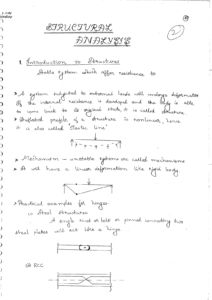 ②
STRUCTURAL
ANALYSIS
1. Introduction to Structures
Stable system which offer resistance to
* A system subjected to external loads will undergo deformation
If the internal resistance is developed and the body is able
to come back to its original state, it is called structure.
* Deflected profile of a structure is nonlinear, curve
It is also called 'Elastic line'
* Mechanism - unstable systems are called mechanisms
* It will have a linear deformations like rigid body.
* Practical examples for hinges
(i) Steel structures
A single rivet or bolt or pinned connecting two
steel plates will act like a hinge.
(ii) RCC